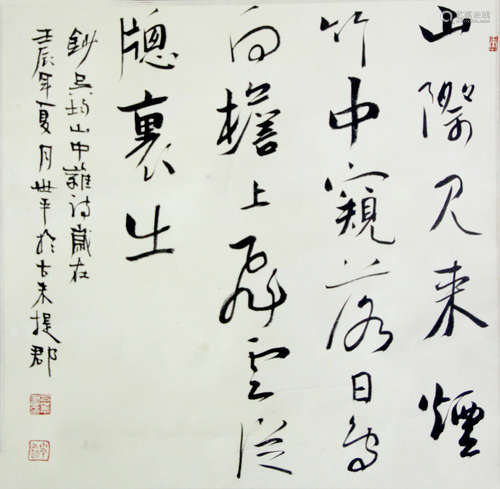 山際见来煙
竹中窺落日鳥
向檐上飛雲從
牕裏出
鈔吴均山中雜诗歲在
壬辰年夏月世平於古朱提郡